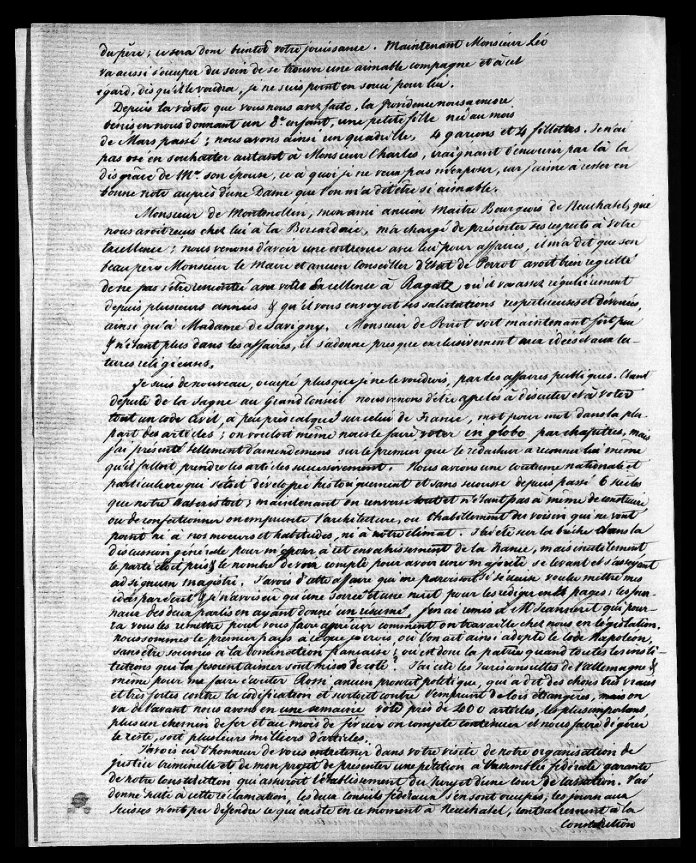 du père; ce sera donc bientôt votre jouissance. Maintenant Monsieur Léo
va aussi s'occuper du soin de se trouver une aimable compagne et à cet
égard, dès qu'il le voudra, je ne suis point en souci pour lui.
Depuis la visite que vous nous avez faite, la Providence nous a encore
bénis en nous donnant un 8e enfant, une petite fille née au mois
de Mars passé; nous avons ainsi un quadrille, 4 garçons et 4 fillettes. Je n'ai
pas osé en souhaiter autant à Monsieur Charles, craignant d'encourir par là la
disgrâce de Me son épouse, ce à quoi je ne veux pas m'exposer, car j'aime à rester en
bonne note auprès d'une Dame que l'on m'a dit être si aimable.
Monsieur de Montmollin, mon ami ancien Maitre Bourgeois de Neuchatel, que
nous avoit reçus chez lui à la Borcarderie, m'a chargé de présenter ses respects à Votre
Excellence; nous venons d'avoir une entrevue avec lui pour affaires, et il m'a dit que son
beau père Monsieur le Maire et ancien Conseiller d'Etat de Perrot avoit bien regretté
de ne pas s'être rencontré avec votre Excellence à Ragatz où il va assez régulièrement
depuis plusieurs années & qu'il vous envoyoit ses salutations respectueuses et dévouées,
ainsi qu'à Madame de Savigny. Monsieur de Perrot sort maintenant fort peu
& n'étant plus dans les affaires, il s'adonne presque exclusivement aux idées et aux lec-
tures religieuses.
Je suis de nouveau, occupé plus que je ne le voudrois, par les affaires publiques. Etant
député de la Sagne au Grand Conseil nous venons d'être appelés à discuter et à voter
tout un code civil, à peu près calqué sur celui de France, mot pour mot dans la plu-
part des articles; on vouloit même nous le faire voter in globo par chapitres, mais
j'ai présenté tellement d'amendemens sur le premier que le rédacteur a reconnu lui même
qu'il falloit prendre les articles successivement. Nous avions une coutume nationale et
particulière qui s'étoit développée historiquement et sans secousse depuis passé 6 siècles
que notre existoit; maintenant on renverse tout et n'étant pas à même de construire
ou de confectionner on emprunte l'architecture, ou l'habillement des voisin qui ne vont
point ni à nos moeurs et habitudes, ni à notre climat. J'ai été sur la brèche dans la
discussion générale pour m'opposer à cet envahissement de la France, mais inutilement
le parti étoit pris & le nombre de voix compté pour avoir une majorité se levant et s'asseyant
ad signum magistri. J'avois d'autre affaire qui ne paroissoit si sérieux voulu mettre mes
idées par écrit & je n'avois eu qu'une soirée et une nuit pour les rédiger en 24 pages; les jour-
naux des deux partis en ayant donné un résumé, j'en ai remis à M. Jeanneret qui pour-
ra vous les remettre pour vous faire apprécier comment on travaille chez nous en législation.
Nous sommes le premier pays à ce que je crois, où l'on ait ainsi adopté le Code Napoléon,
sans être soumis à la domination française; où est donc la patrie quand toutes les insti-
tutions qui la faisoient aimer sont mises de coté? J'ai cité les Jurisconsultes de l'Allemagne &
même pour me faire écouter Rossi ancien proscrit politique, qui a dit des choses très vraies
et très fortes contre la codification et surtout contre l'emprunt de lois étrangères, mais on
va de l'avant nous avons en une semaine voté près de 400 articles, les plus importans,
plus un chemin de fer et au mois de février on compte continuer et nous faire digérer
le reste, soit plusieurs milliers d'articles.
J'avois eu l'honneur de vous entretenir dans votre visite de notre organisation de
justice criminelle et de mon projet de présenter une pétition à l'Assemblée fédérale garante
de notre Constitution qui assuroit l'établissement du Jury et d'une Cour de Cassation. J'ai
donné suite à cette réclamation, les deux Conseils fédéraux s'en sont occupés; les journaux
Suisses n'ont pu défendre ce qui existe en ce moment à Neuchatel, contrairement à la
Constitution